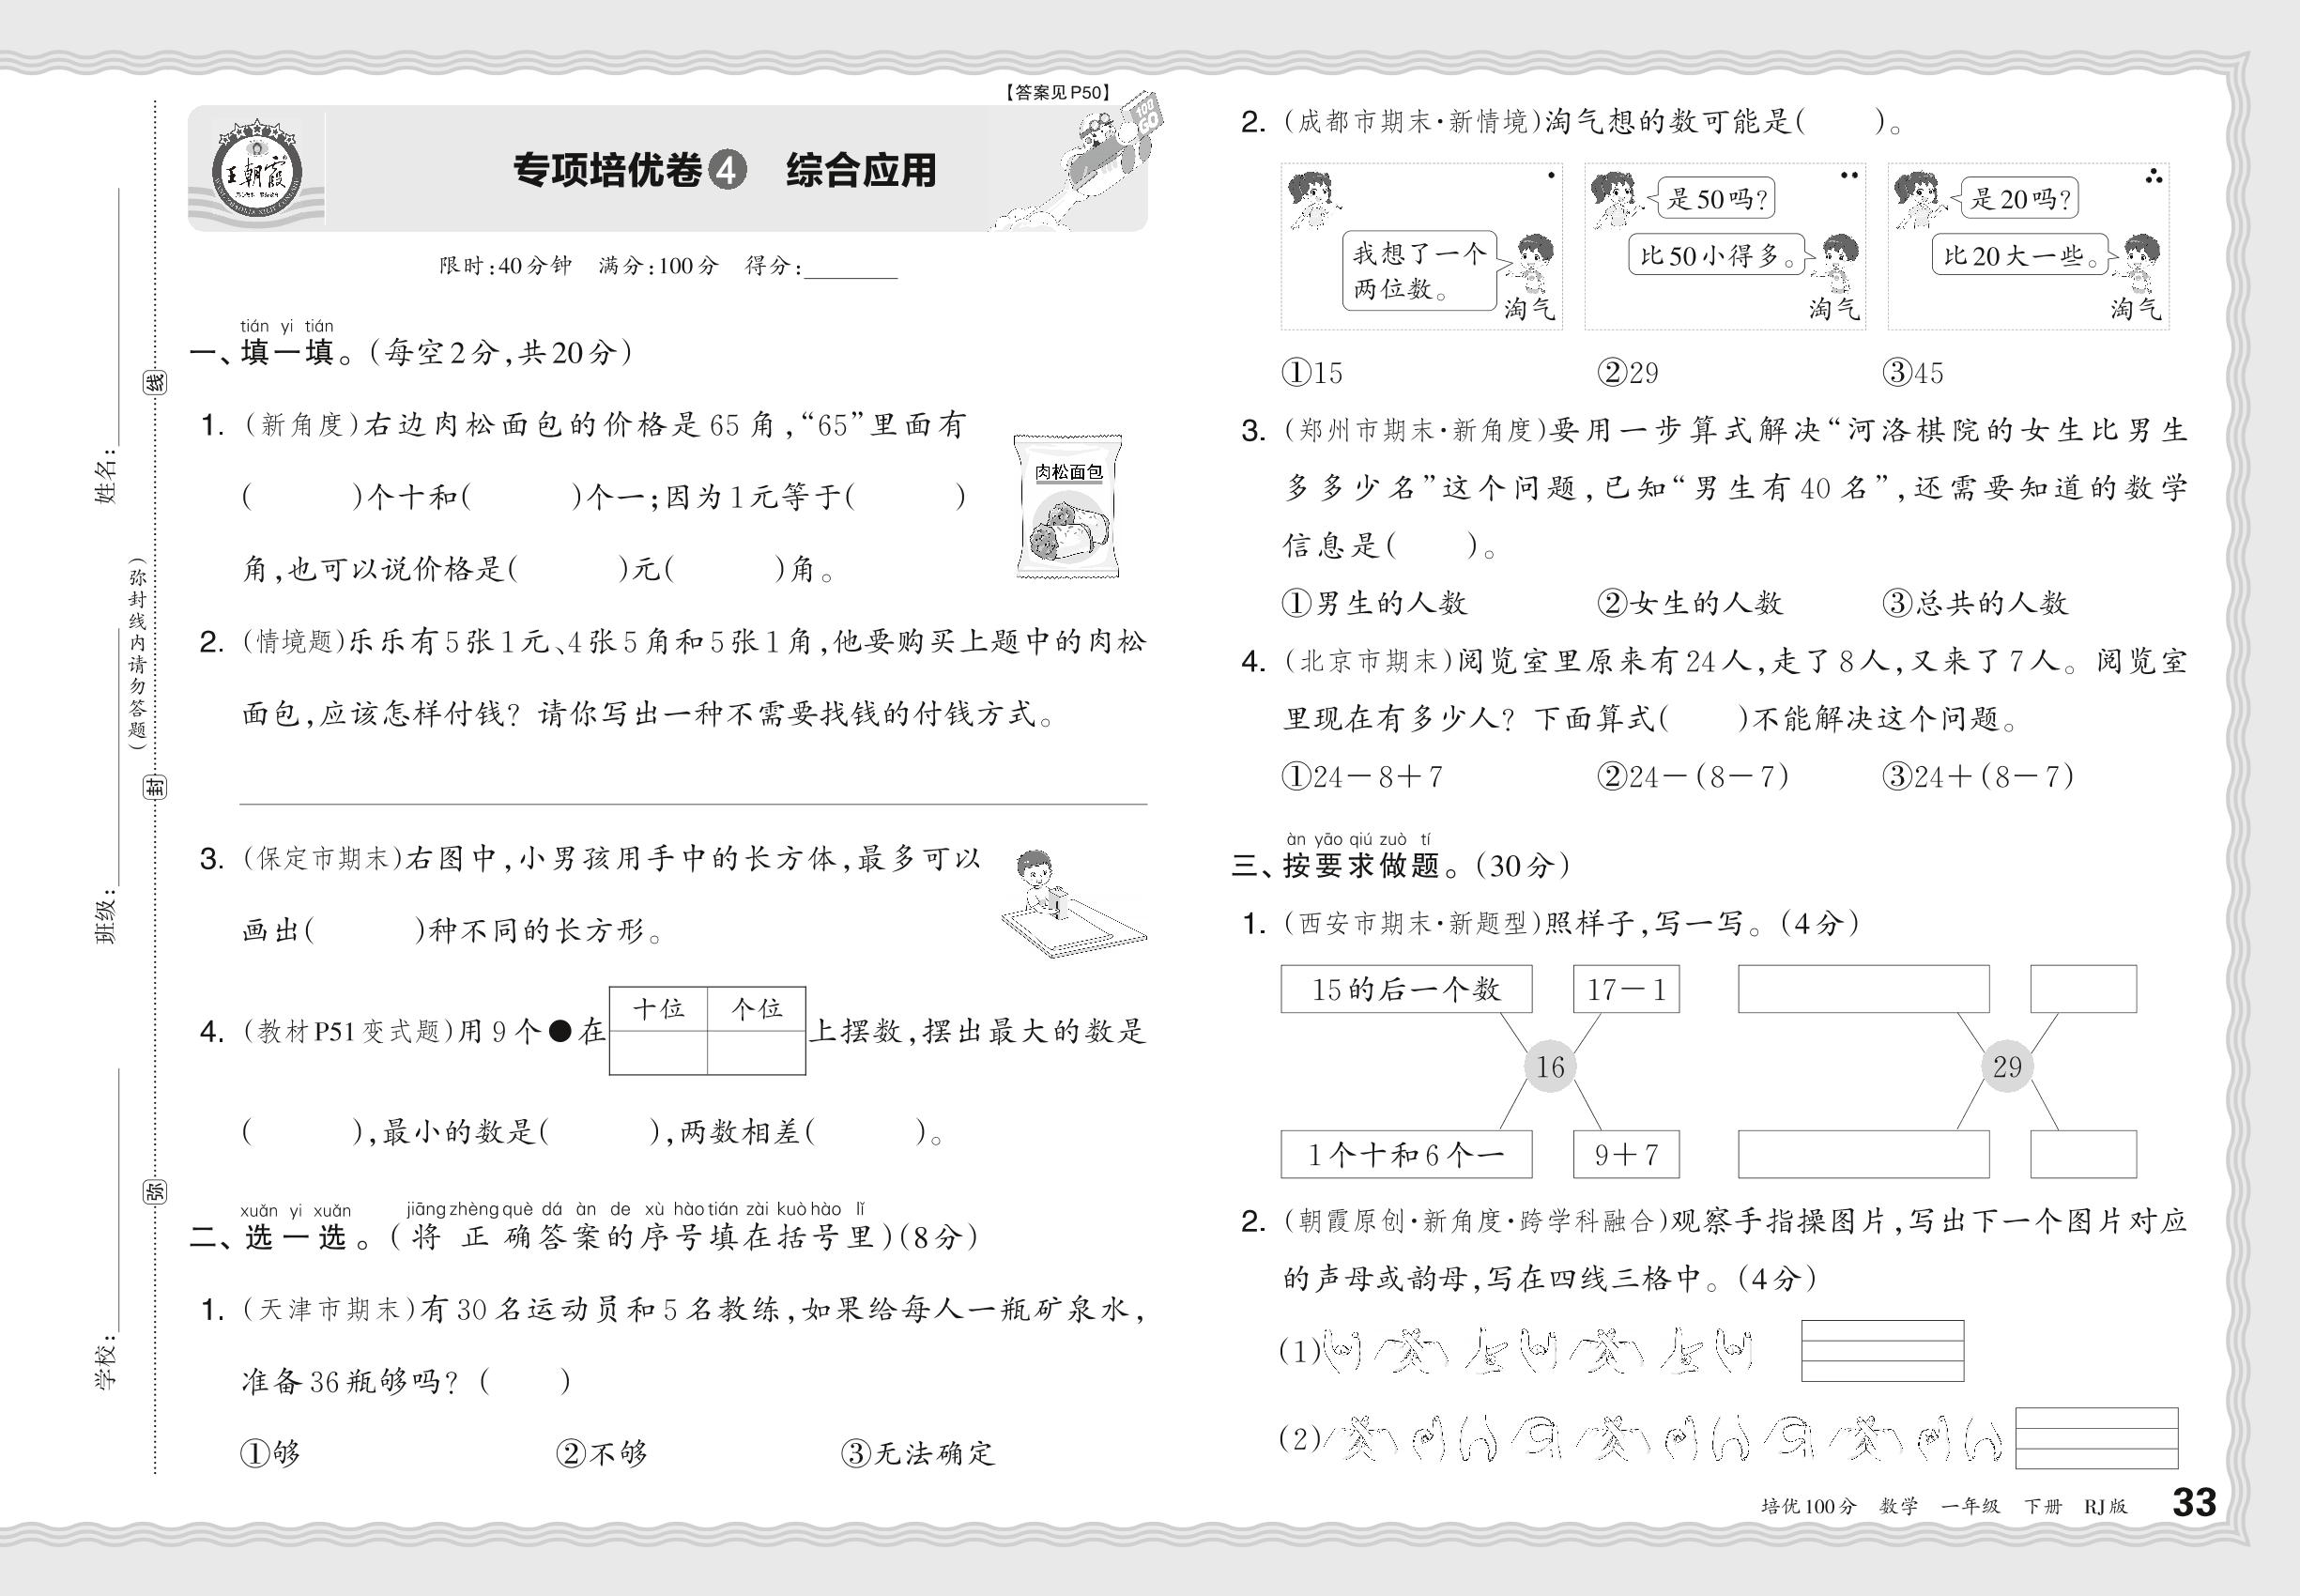 【答案见P50】
王朝霞
100
GO
专项培优卷4 综合应用
限时:40分钟 满分:100分 得分:
tián yi tián
一、填一填。(每空2分,共20分)
1. (新角度)右边肉松面包的价格是65角,“65”里面有
( )个十和( )个一;因为1元等于( )
角,也可以说价格是( )元( )角。
肉松面包
2. (情境题)乐乐有5张1元、4张5角和5张1角,他要购买上题中的肉松
面包,应该怎样付钱?请你写出一种不需要找钱的付钱方式。
3. (保定市期末)右图中,小男孩用手中的长方体,最多可以
画出( )种不同的长方形。
十位 个位
4. (教材P51变式题)用9个●在 上摆数,摆出最大的数是
( ),最小的数是( ),两数相差( )。
xuǎn yi xuǎn jiāng zhèng què dá àn de xù hào tián zài kuò hào lǐ
二、选一选。(将正确答案的序号填在括号里)(8分)
1. (天津市期末)有30名运动员和5名教练,如果给每人一瓶矿泉水,
准备36瓶够吗?( )
①够 ②不够 ③无法确定
学校:
班级:
姓名:
(弥封线内请勿答题)
弥
封
线
2. (成都市期末·新情境)淘气想的数可能是( )。
我想了一个
两位数。
淘气
是50吗?
比50小得多。
淘气
是20吗?
比20大一些。
淘气
①15 ②29 ③45
3. (郑州市期末·新角度)要用一步算式解决“河洛棋院的女生比男生
多多少名”这个问题,已知“男生有40名”,还需要知道的数学
信息是( )。
①男生的人数 ②女生的人数 ③总共的人数
4. (北京市期末)阅览室里原来有24人,走了8人,又来了7人。阅览室
里现在有多少人?下面算式( )不能解决这个问题。
①24-8+7 ②24-(8-7) ③24+(8-7)
àn yāo qiú zuò tí
三、按要求做题。(30分)
1. (西安市期末·新题型)照样子,写一写。(4分)
15的后一个数 17-1
16 29
1个十和6个一 9+7
2. (朝霞原创·新角度·跨学科融合)观察手指操图片,写出下一个图片对应
的声母或韵母,写在四线三格中。(4分)
(1)
(2)
培优100分 数学 一年级 下册 RJ版 33